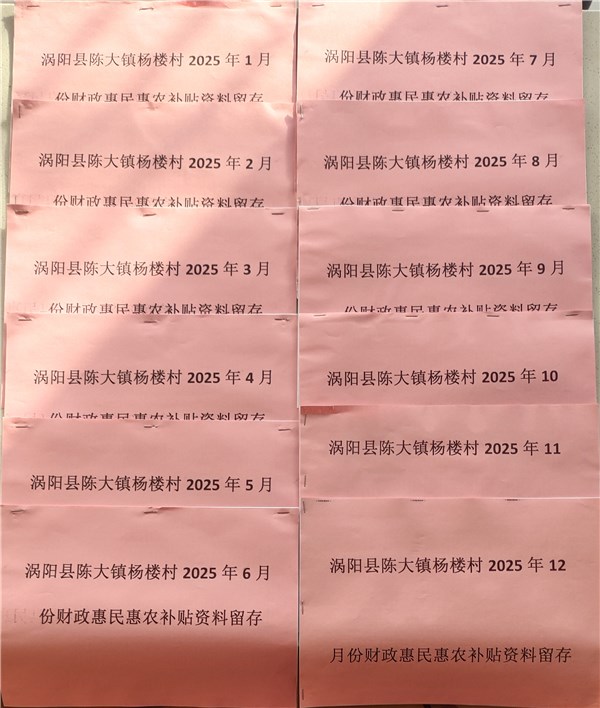 涡阳县陈大镇杨楼村 2025 年 1 月
份财政惠民惠农补贴资料留存
涡阳县陈大镇杨楼村 2025 年 2 月
份财政惠民惠农补贴资料留存
涡阳县陈大镇杨楼村 2025 年 3 月
份财政惠民惠农补贴资料留存
涡阳县陈大镇杨楼村 2025 年 4 月
份财政惠民惠农补贴资料留存
涡阳县陈大镇杨楼村 2025 年 5 月
涡阳县陈大镇杨楼村 2025 年 6 月
份财政惠民惠农补贴资料留存
涡阳县陈大镇杨楼村 2025 年 7 月
份财政惠民惠农补贴资料留存
涡阳县陈大镇杨楼村 2025 年 8 月
份财政惠民惠农补贴资料留存
涡阳县陈大镇杨楼村 2025 年 9 月
份财政惠民惠农补贴资料留存
涡阳县陈大镇杨楼村 2025 年 10
涡阳县陈大镇杨楼村 2025 年 11
涡阳县陈大镇杨楼村 2025 年 12
月份财政惠民惠农补贴资料留存